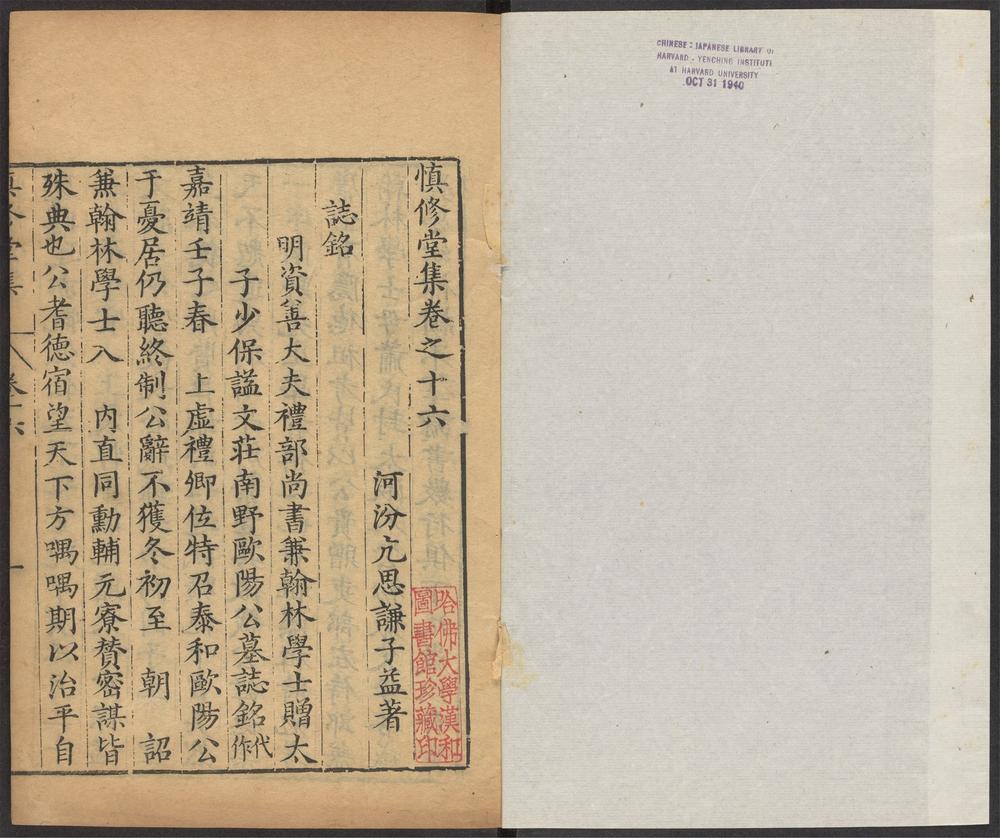 CHINESE - JAPANESE LIBRARY OF
HARVARD - YENCHING INSTITUTE
AT HARVARD UNIVERSITY
OCT 31 1940
慎修堂集卷之十六
河汾亢思謙子益著
哈佛大學漢和
圖書館珍藏印
誌銘
明資善大夫禮部尚書兼翰林學士贈太
子少保諡文莊南野歐陽公墓誌銘代作
嘉靖壬子春 上虛禮卿位特召泰和歐陽公
于憂居仍聽終制公辭不獲冬初至 朝 詔
兼翰林學士入 內直同勳輔元寮贊密謀皆
殊典也公耆德宿望天下方喁喁期以治平自